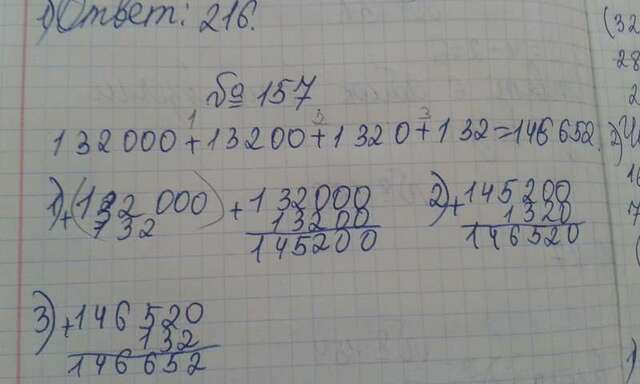 Ответ: 216.
№ 157
1 2 3
132000+13200+1320+132=146652
1) +(132 000)
732
+132000
13200
145200
2) +145200
1320
146520
3) +146520
132
146652
(32
28
2
2)
16
7
(
1)